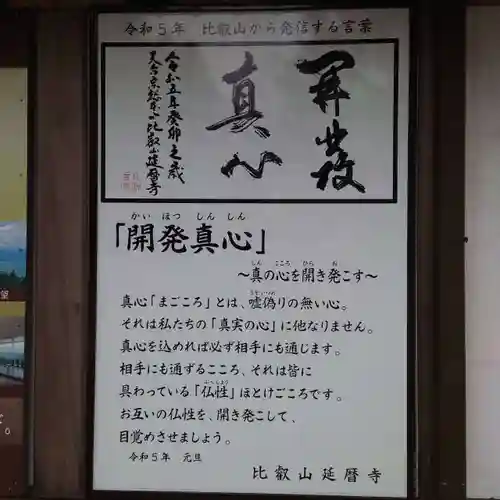 令和５年　比叡山から発信する言葉
開發
真心
令和五年癸卯之歳
天台宗総本山比叡山延暦寺
かい ほつ しん しん
「開発真心」
しん こころ ひら お
～真の心を開き発こす～
真心「まごころ」とは、嘘偽りの無い心。
それは私たちの「真実の心」に他なりません。
真心を込めれば必ず相手にも通じます。
相手にも通ずるこころ、それは皆に
ぶっしょう
具わっている「仏性」ほとけごころです。
お互いの仏性を、開き発こして、
目覚めさせましょう。
令和５年　元旦
比叡山延暦寺
望
。